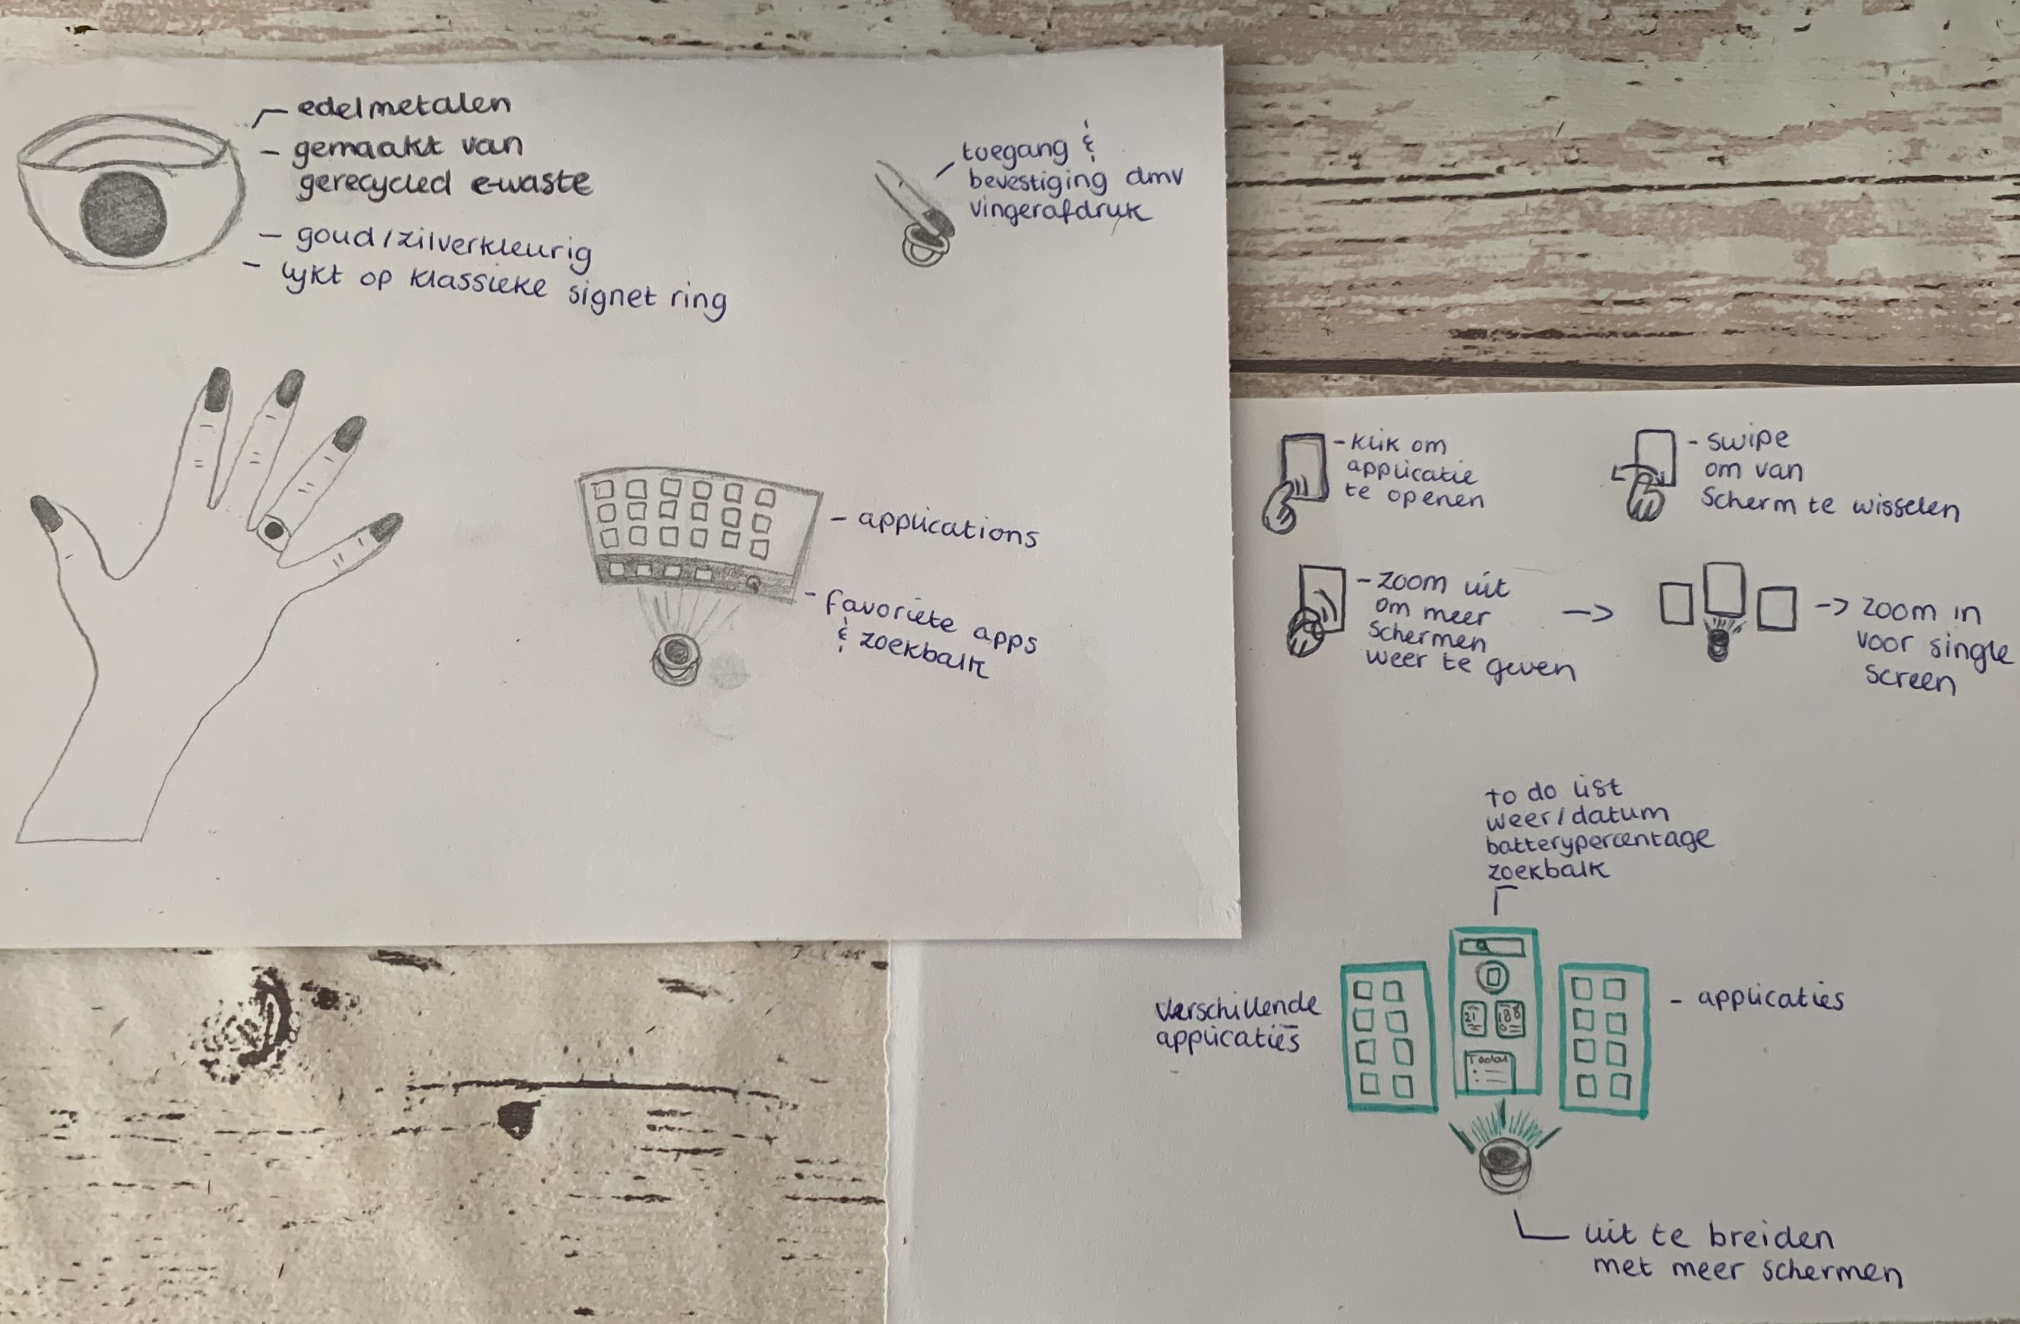 - edelmetalen
- gemaakt van
gerecycled e-waste
- goud/zilverkleurig
- lijkt op klassieke signet ring
toegang &
bevestiging dmv
vingerafdruk
- applications
- favoriete apps
& zoekbalk
- klik om
applicatie
te openen
- swipe
om van
scherm te wisselen
- zoom uit
om meer
schermen
weer te geven
-> zoom in
voor single
screen
to do list
weer/datum
batterypercentage
zoekbalk
verschillende
applicaties
- applicaties
21
uit te breiden
met meer schermen